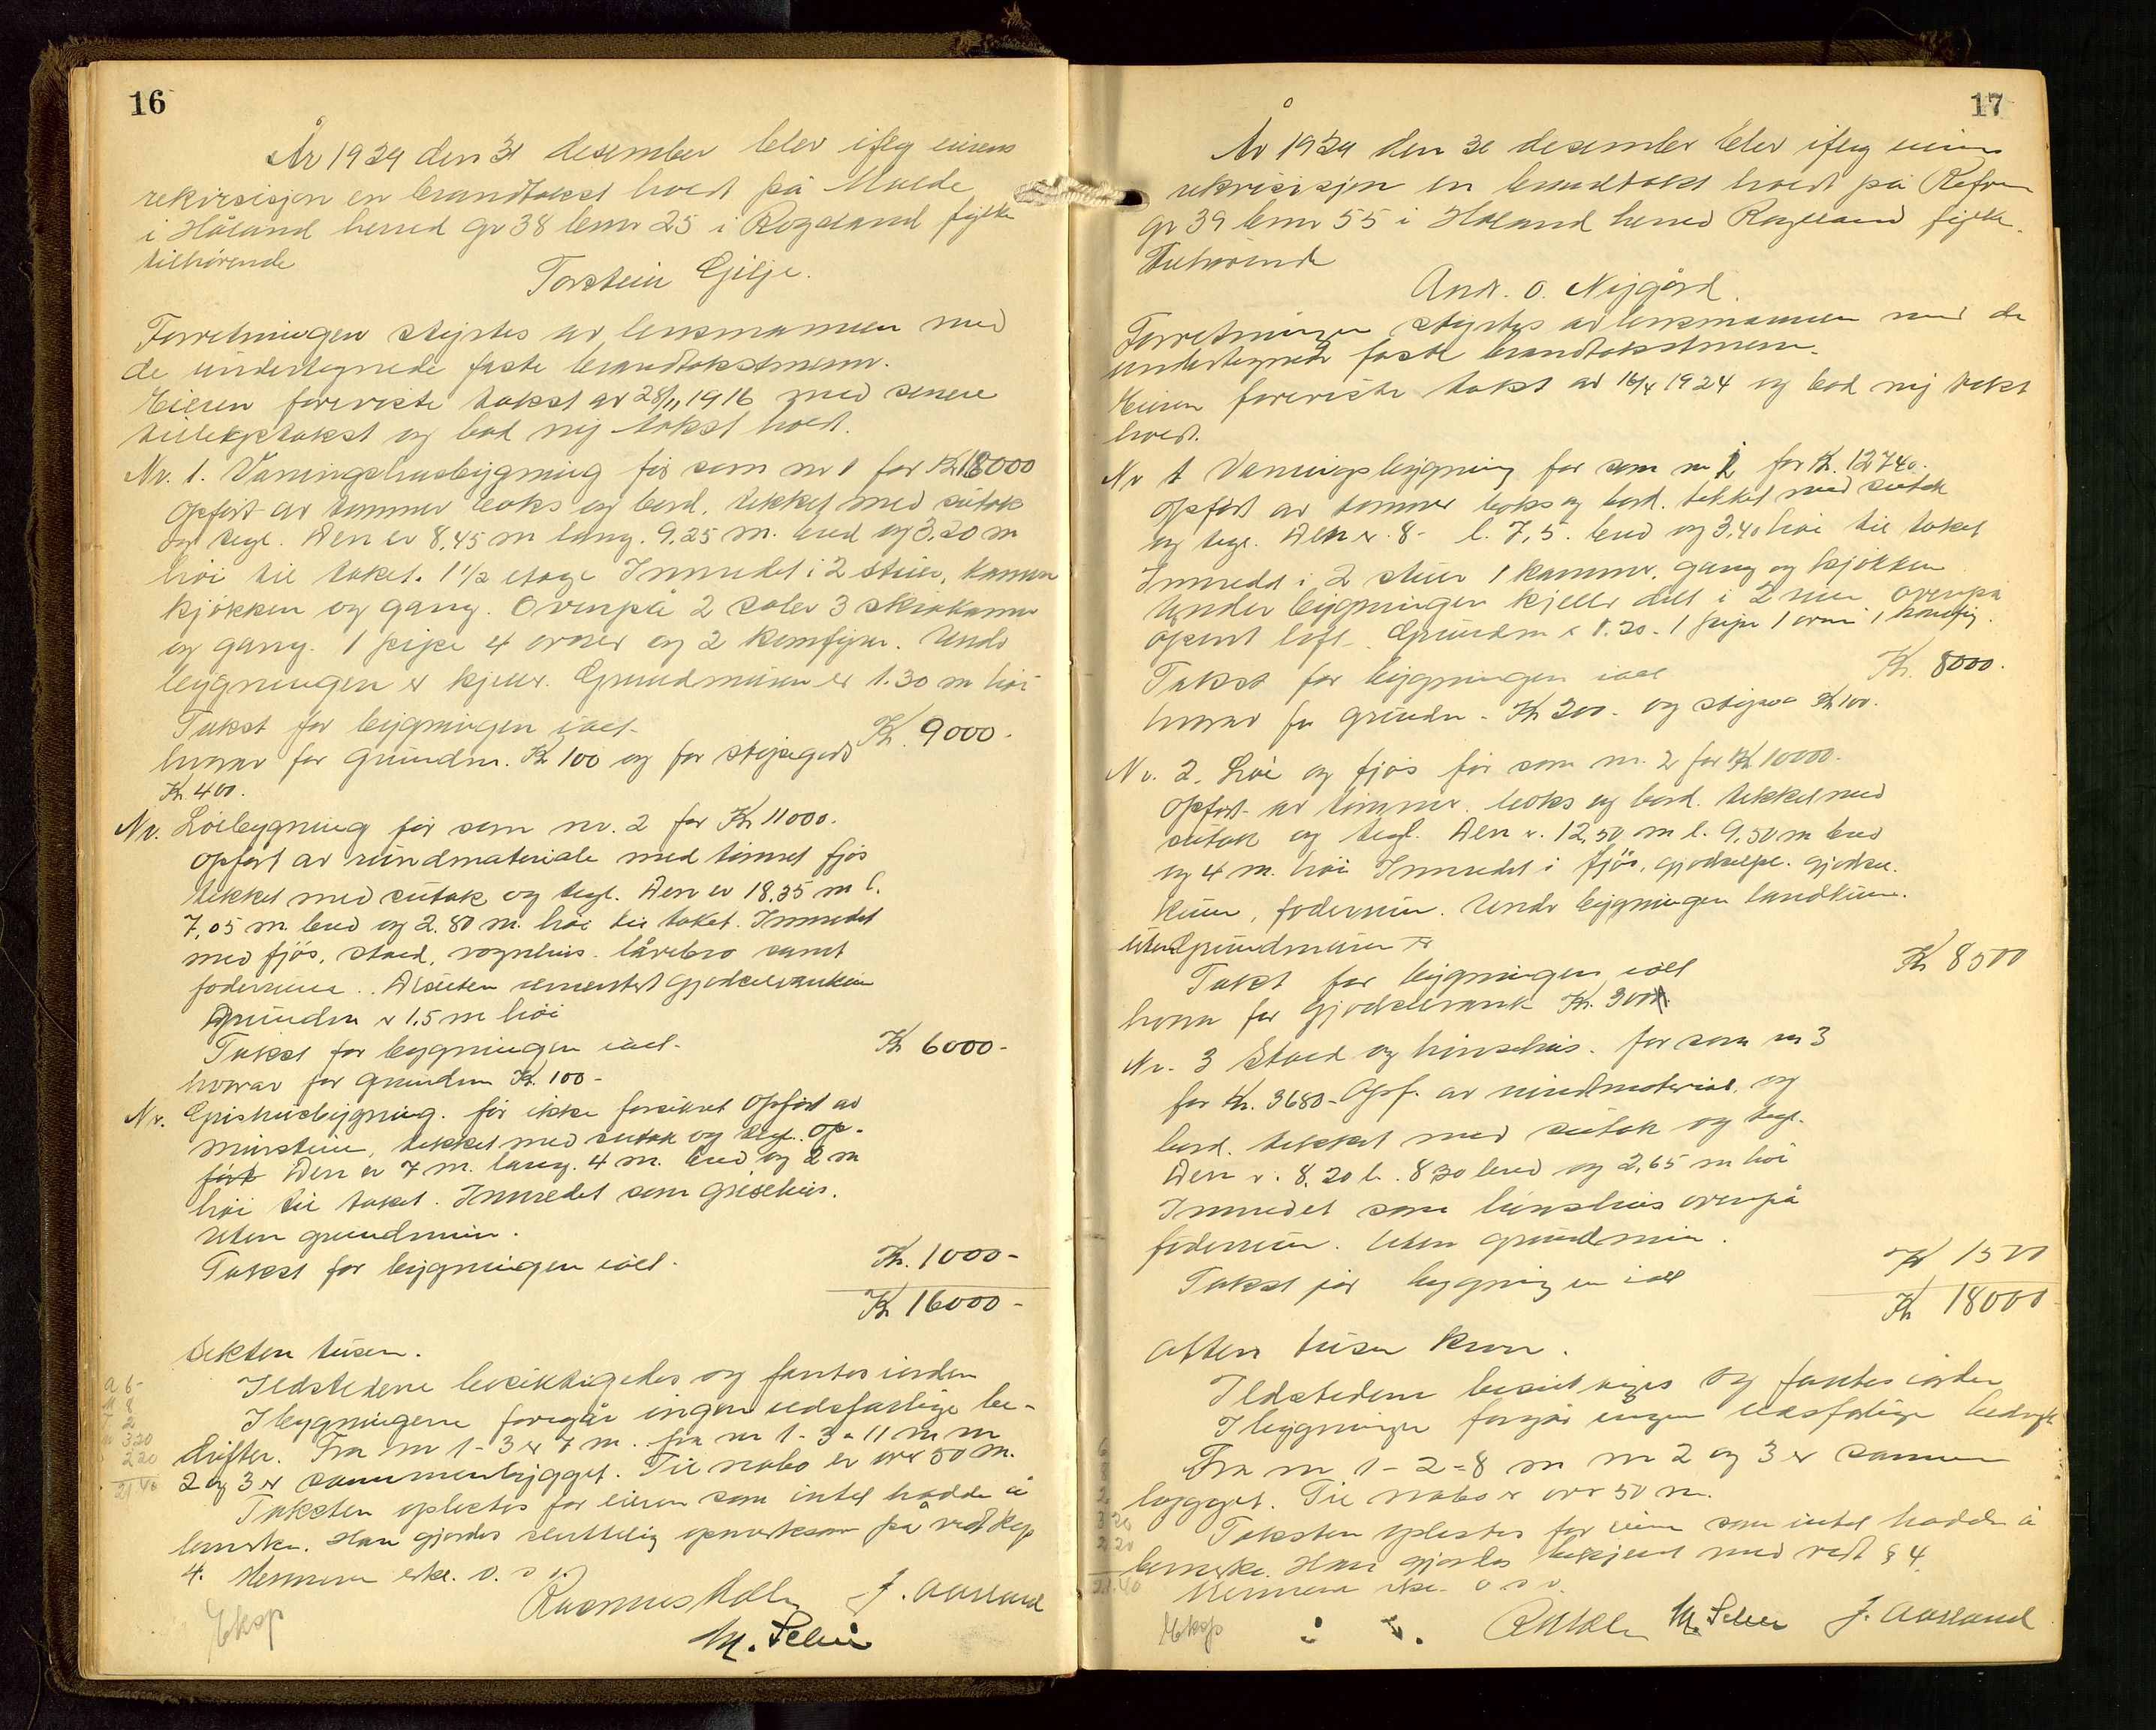 16
År 1929 den 31 desember blev ifølg eierens
rekvisisjon en brandtakst holdt på Malde
i Håland herred gr 38 bnr 25 i Rogaland fylke
tilhørende
Torstein Gilje.
Forretningen styrtes av lensmannen med
de undertegnede faste brandtakstmenn.
Eieren foreviste takst av 28/11 1916 med senere
tilleggstakst og bad ny takst holdt.
Nr. 1. Vaningshusbygning før som nr 1 for Kr 18000
Opført av tømmer boks og bord. tekket med sutak
og tegl. Den er 8.45 m lang. 9.25 m. bred og 3,20 m
høi til taket. 1 1/2 etage Innredet i 2 stuer, kammer
kjøkken og gang. Ovenpå 2 saler 3 skråkamer
og gang. 1 pipe 4 ovner og 2 komfyrer. Under
bygningen er kjeller. Grundmuren er 1.30 m høi
Takst for bygningen ialt.
Kr. 9000.
hvorav for grundm. Kr 100 og for
Kr. 400.
Nr. Løebygning før som nr. 2 for Kr 11000.
Opført av rundmateriale med tømret fjøs
tekket med sutak og tegl. Den er 18.35 m l.
7,05 m. bred og 2.80 m. høi til taket. Innredet
med fjøs, stald, vognhus. låvebro samt
foderrum. Desuten sementert
Grundm er 1.5 m høi
Takst for bygningen ialt.
Kr 6000-
hvorav for grundm Kr. 100-
Nr. Grishusbygning. før ikke forsikret Opført av
murstein, tekket med sutak og tegl. Op-
ført Den er 7 m. lang. 4 m. bred og 2 m
høi til taket. Innredet som grisehus.
Uten grundmur.
Takst for bygningen ialt.
Kr. 1000-
Kr 16000-
seksten tusen.
Ildstedene besiktigedes og fantes iorden
I bygningene foregår ingen ildsfarlige be-
drifter. Fra nr 1-3 er 7 m. fra nr 1-3 = 11 m nr
2 og 3 er sammenbygget. Til nabo er over 50 m.
Taksten oplestes for eieren som intet hadde å
bemerke. Han gjordes skriftlig opmerksom på vedt kap
4. Mennene erkl. o. s v.
Rasmus J. Aarland
Eksp
17
År 1929 den 31 desember blev ifølg eierens
rekvisisjon en brandtakst holdt på
gr 39 bnr 55 i Håland herred Rogaland fylke.
Tilhørende
Andr. O. Nygård.
Forretningen styrtes av lensmannen med de
undertegnede faste brandtakstmenn.
Eieren foreviste takst av 16/4 1924 og bad ny takst
holdt.
Nr 1 Vaningsbygning før som nr 1 for Kr. 12740.
Opført av tømmer boks og bord. tekket med sutak
og tegl. Den er. 8- l. 7,5. bred og 3,40 høi til taket
Innredet i 2 stuer 1 kammer. gang og kjøkken
Under bygningen kjeller delt i 2 rum ovenpå
åpent loft. Grundm er 1.20. 1 pipe 1 ovn 1 komfyr.
Takst for bygningen ialt
Kr. 8000.
hvorav for grundm. Kr 200. og Kr 100.
Nr. 2. Løe og fjøs før som nr. 2 for Kr 10000.
Opført av tømmer. boks og bord. tekket med
sutak og tegl. Den er. 12,50 m l. 9,50 m bred
og 4 m. høi Innredet i fjøs, gjødsel-
kum, foderrum. Under bygningen landkum.
uten Grundmuren er
Takst for bygningen ialt
Kr 8500
hvorav for Kr. 300.
Nr. 3 Stald og hønsehus. før som nr 3
for Kr. 3680- Opf. av rundmaterial og
bord. tekket med sutak og tegl.
Den er. 8.20 l. 8.30 bred og 2,65 m høi
Innredet som hønsehus ovenpå
foderrum. Uten grundmur.
Takst for bygningen ialt
Kr 1500
Kr 18000
Atten tusen kroner.
Ildstedene besiktiges og fantes iorden
I bygningene foregår ingen ildsfarlige bedrifter
Fra nr 1-2 = 8 m nr 2 og 3 er sammen
bygget. Til nabo er over 50 m.
Taksten oplestes for eieren som intet hadde å
bemerke. Han gjordes bekjent med vedt § 4.
Mennene erkl. o s v.
Eksp
J. Aarland